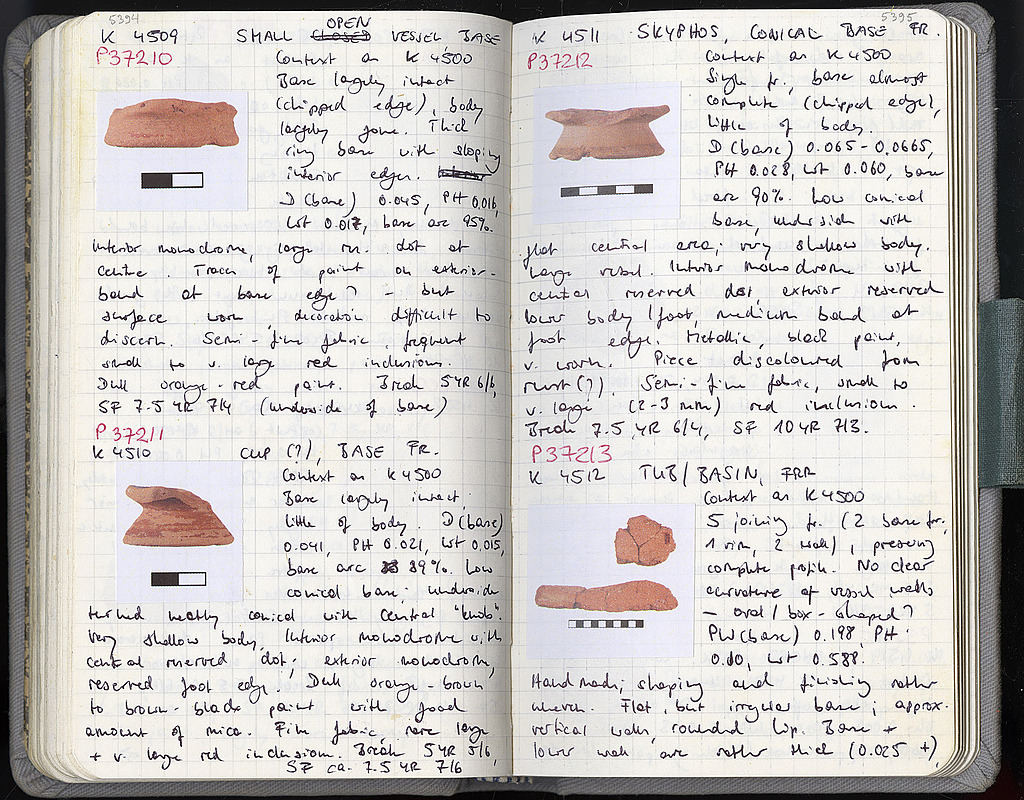 5394
K 4509 SMALL CLOSED OPEN VESSEL BASE
P37210
Context as K 4500
Base largely intact
(chipped edge), body
largely gone. Thick
ring base with sloping
interior edges.
D (base) 0.045, PH 0.016,
Wt 0.017, base arc 95%.
Interior monochrome, large res. dot at
centre. Traces of paint on exterior -
band at base edge? - but
surface worn, decoration difficult to
discern. Semi-fine fabric, frequent
small to v. large red inclusions.
Dull orange-red paint. Break 5YR 6/6,
SF 7.5 YR 7/4 (underside of base)
P 37211
K 4510 CUP (?), BASE FR.
Context as K 4500
Base largely intact;
little of body. D (base)
0.041, PH 0.021, Wt 0.015,
base arc 89%. Low
conical base; underside
turned neatly conical with central "knob".
Very shallow body. Interior monochrome with
central reserved dot; exterior monochrome,
reserved foot edge. Dull orange-brown
to brown-black paint with good
amount of mica. Fine fabric, rare large
+ v. large red inclusion. Break 5YR 5/6,
SF ca. 7.5 YR 7/6
5395
K 4511 SKYPHOS, CONICAL BASE FR.
P37212
Context as K 4500
Single fr., base almost
complete (chipped edge),
little of body.
D (base) 0.065-0.0665,
PH 0.028, Wt 0.060, base
arc 90%. Low conical
base, underside with
flat central area; very shallow body.
Large vessel. Interior monochrome with
central reserved dot, exterior reserved
lower body/foot, medium band at
foot edge. Metallic, black paint,
v. worn. Piece discoloured from
rust (?). Semi-fine fabric, small to
v. large (2-3 mm) red inclusions.
Break 7.5 YR 6/4, SF 10YR 7/3.
P37213
K 4512 TUB/BASIN, FRR
Context as K 4500
5 joining fr. (2 base fr.,
1 rim, 2 wall), preserving
complete profile. No clear
curvature of vessel walls
- oval / box-shaped?
PW (base) 0.198, PH
0.10, Wt 0.588.
Handmade; shaping and finishing rather
uneven. Flat, but irregular base; approx.
vertical walls, rounded lip. Base +
lower wall are rather thick (0.025 +),